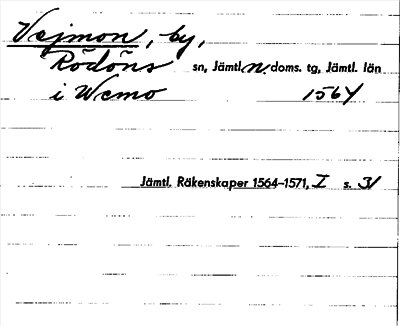 Vejmon, by,
Rödöns sn, Jämtl. n. doms. tg, Jämtl. län
i Wemo 1564
Jämtl. Räkenskaper 1564-1571, I s. 31